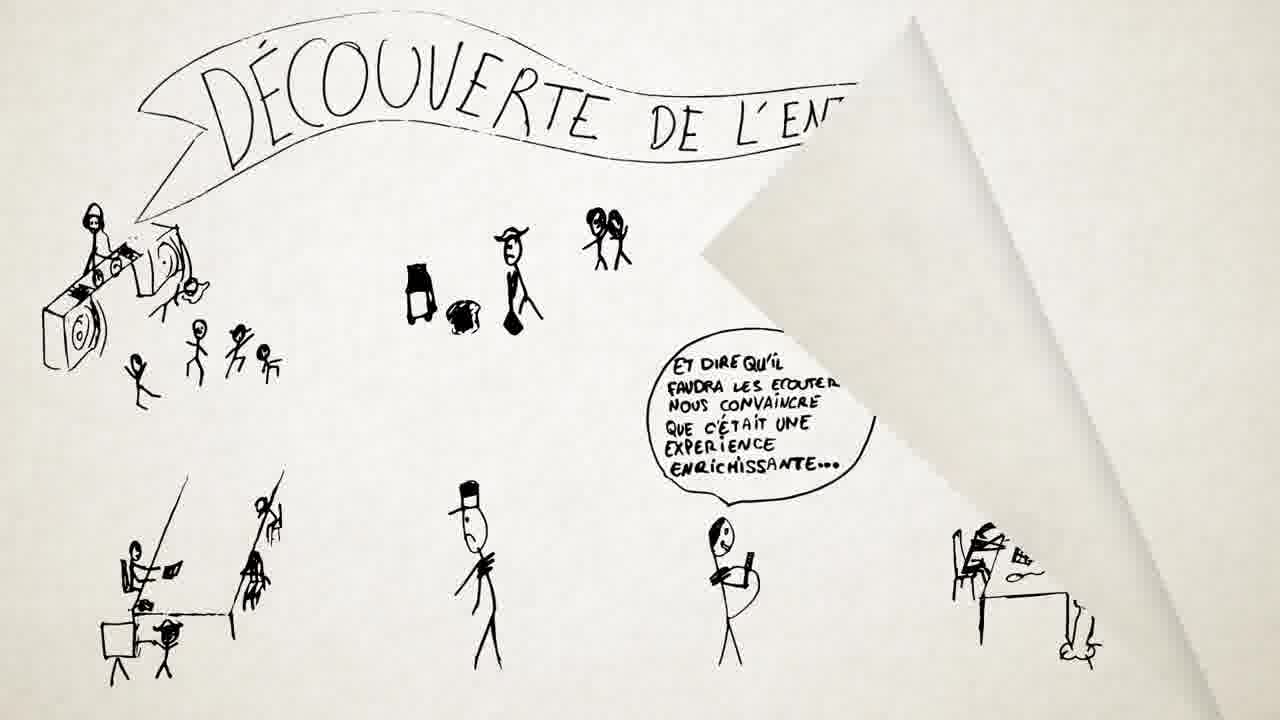 DÉCOUVERTE DE L'EN
ET DIRE QU'IL
FAUDRA LES ECOUTER
NOUS CONVAINCRE
QUE C'ÉTAIT UNE
EXPERIENCE
ENRICHISSANTE...